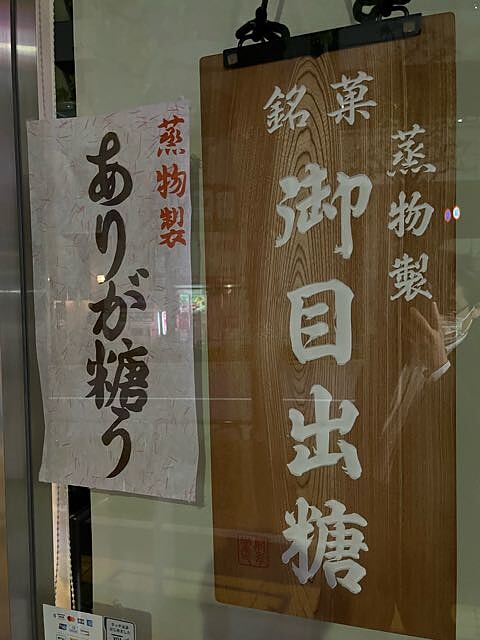 銘菓
蒸物製
御目出糖
蒸物製
ありが糖う